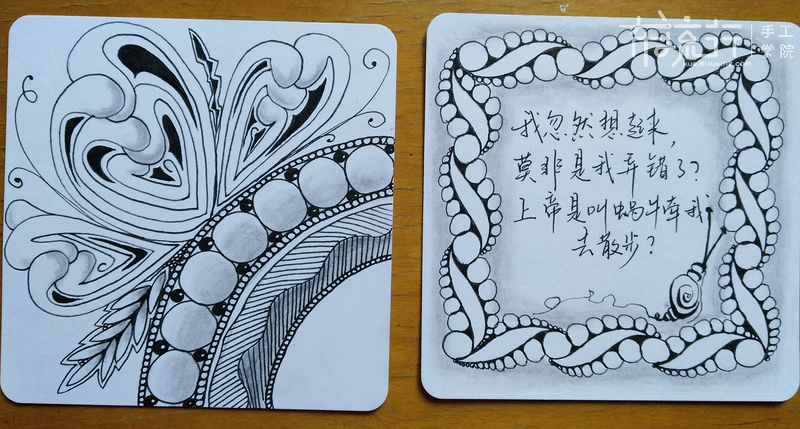 手工
学院
我忽然想起来，
莫非是我弄错了？
上帝是叫蜗牛牵我
去散步？